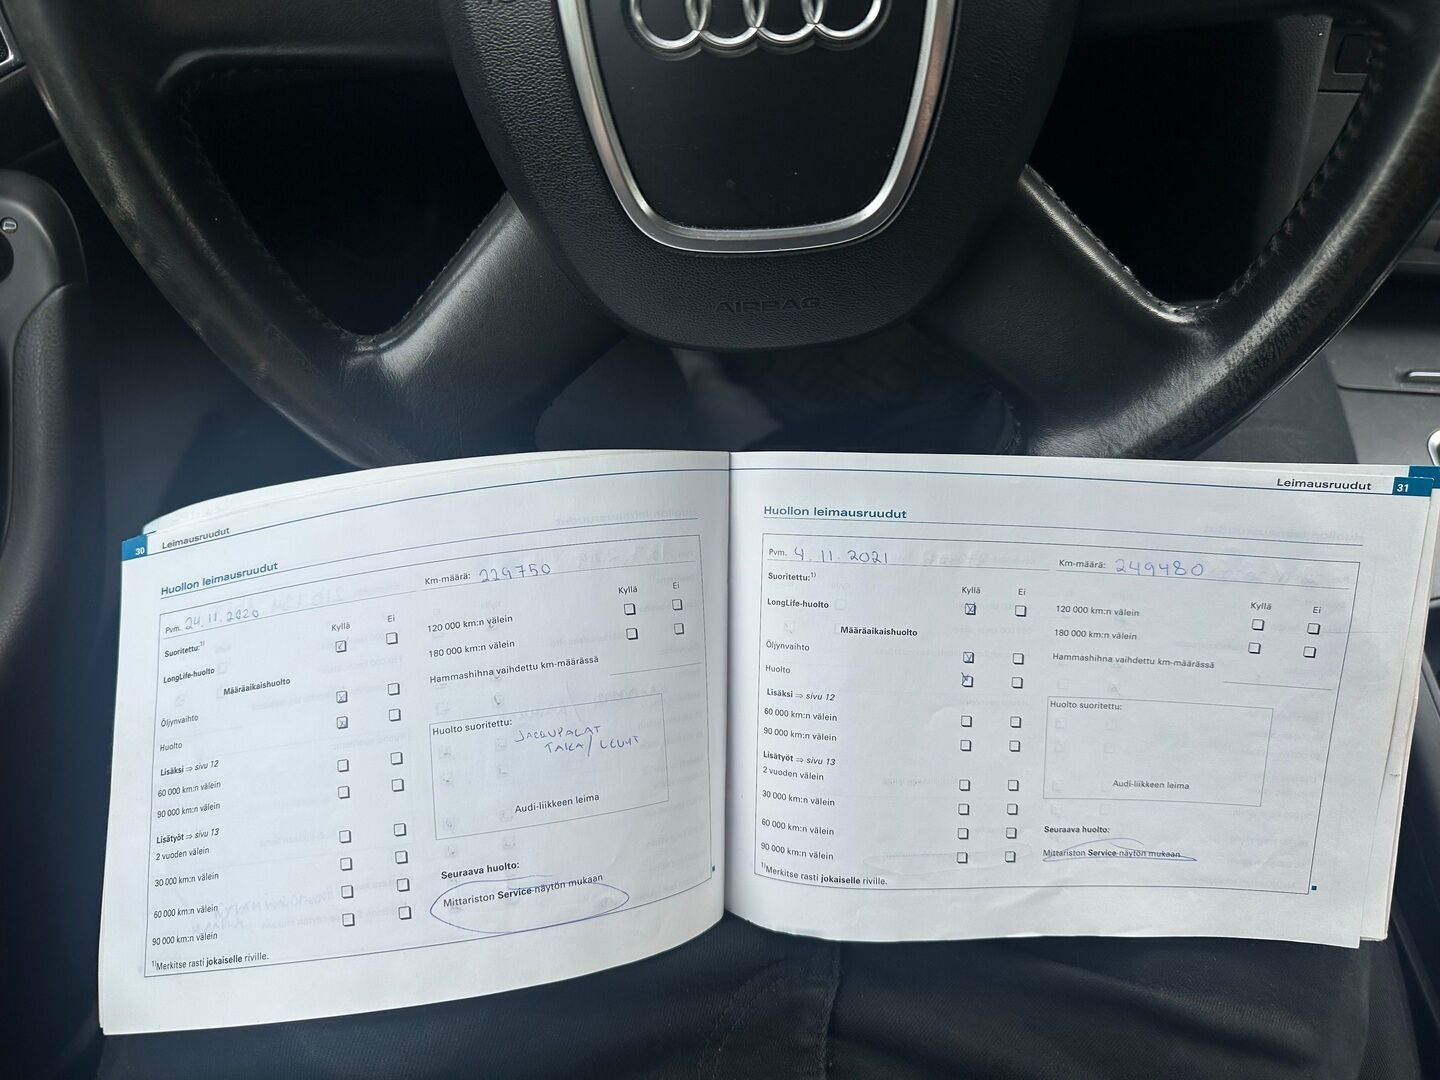 AIRBAG
30 Leimausruudut
Huollon leimausruudut
Pvm. 24.11.2020
Km-määrä: 229750
Suoritettu:¹⁾
Kyllä Ei
LongLife-huolto
Määräaikaishuolto
Öljynvaihto
Huolto
Lisäksi ⇒ sivu 12
60 000 km:n välein
90 000 km:n välein
Lisätyöt ⇒ sivu 13
2 vuoden välein
30 000 km:n välein
60 000 km:n välein
90 000 km:n välein
¹⁾Merkitse rasti jokaiselle riville.
Kyllä Ei
120 000 km:n välein
180 000 km:n välein
Hammashihna vaihdettu km-määrässä
Huolto suoritettu:
JARRUPALAT
TAKA/
Audi-liikkeen leima
Seuraava huolto:
Mittariston Service-näytön mukaan
Leimausruudut 31
Huollon leimausruudut
Pvm. 4.11.2021
Km-määrä: 249480
Suoritettu:¹⁾
Kyllä Ei
LongLife-huolto
Määräaikaishuolto
Öljynvaihto
Huolto
Lisäksi ⇒ sivu 12
60 000 km:n välein
90 000 km:n välein
Lisätyöt ⇒ sivu 13
2 vuoden välein
30 000 km:n välein
60 000 km:n välein
90 000 km:n välein
¹⁾Merkitse rasti jokaiselle riville.
Kyllä Ei
120 000 km:n välein
180 000 km:n välein
Hammashihna vaihdettu km-määrässä
Huolto suoritettu:
Audi-liikkeen leima
Seuraava huolto:
Mittariston Service-näytön mukaan